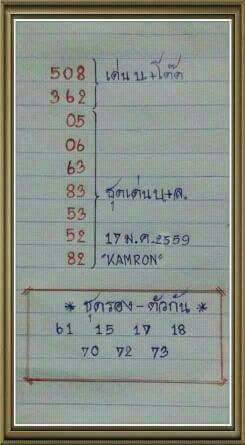 508 } เด่น บ.+โต๊ด
362
05
06
63
83 ชุดเด่น บ+ล.
53
52 17 ม.ค.2559
82 "KAMRON"
* ชุดรอง - ตัวกัน *
61 15 17 18
70 72 73